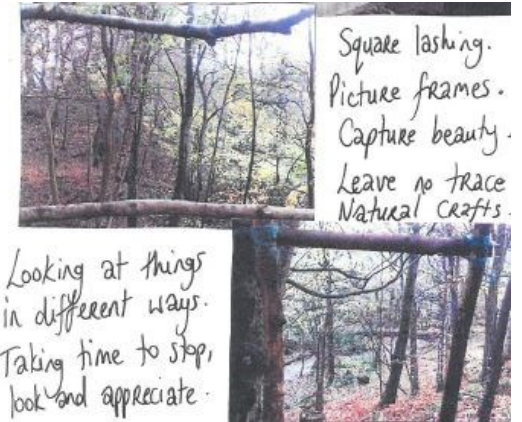 Square lashing.
Picture frames.
Capture beauty.
Leave no trace
Natural Crafts.
Looking at things
in different ways.
Taking time to stop,
look and appreciate.